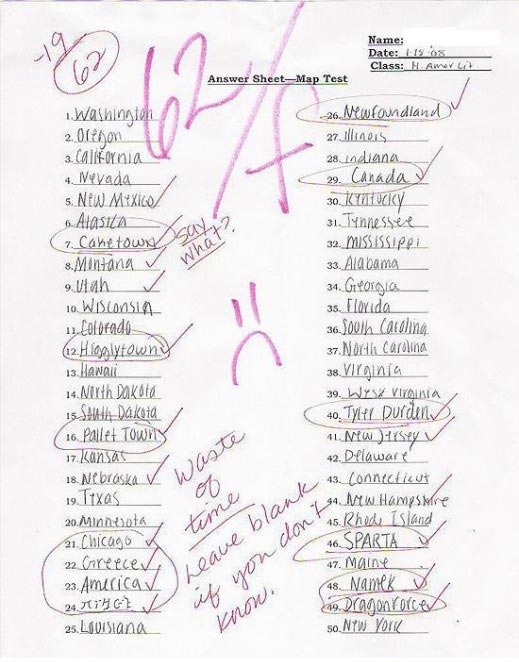 -19
62
62/F
Name:
Date: 1-18-08
Class: H. Amer Lit.
Answer Sheet—Map Test
1. Washington
2. Oregon
3. California
4. Nevada
5. New Mexico
6. Alaska
7. Caketown
say what?
8. Montana
9. Utah
10. Wisconsin
11. Colorado
12. Higglytown
13. Hawaii
14. North Dakota
15. South Dakota
16. Pallet Town
17. Kansas
18. Nebraska
19. Texas
20. Minnesota
21. Chicago
22. Greece
23. America
24.
25. Louisiana
:(
waste
of
time
Leave blank
if you don't
know.
26. Newfoundland
27. Illinois
28. Indiana
29. Canada
30. Kentucky
31. Tennessee
32. Mississippi
33. Alabama
34. Georgia
35. Florida
36. South Carolina
37. North Carolina
38. Virginia
39. West Virginia
40. Tyler Durden
41. New Jersey
42. Delaware
43. Connecticut
44. New Hampshire
45. Rhode Island
46. SPARTA
47. Maine
48. Namek
49. Dragonforce
50. New York